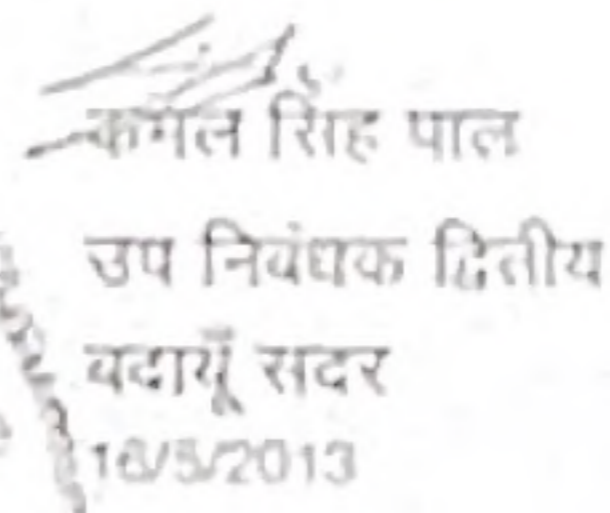 कमल सिंह पाल
उप निबंधक द्वितीय
बदायूँ सदर
16/5/2013